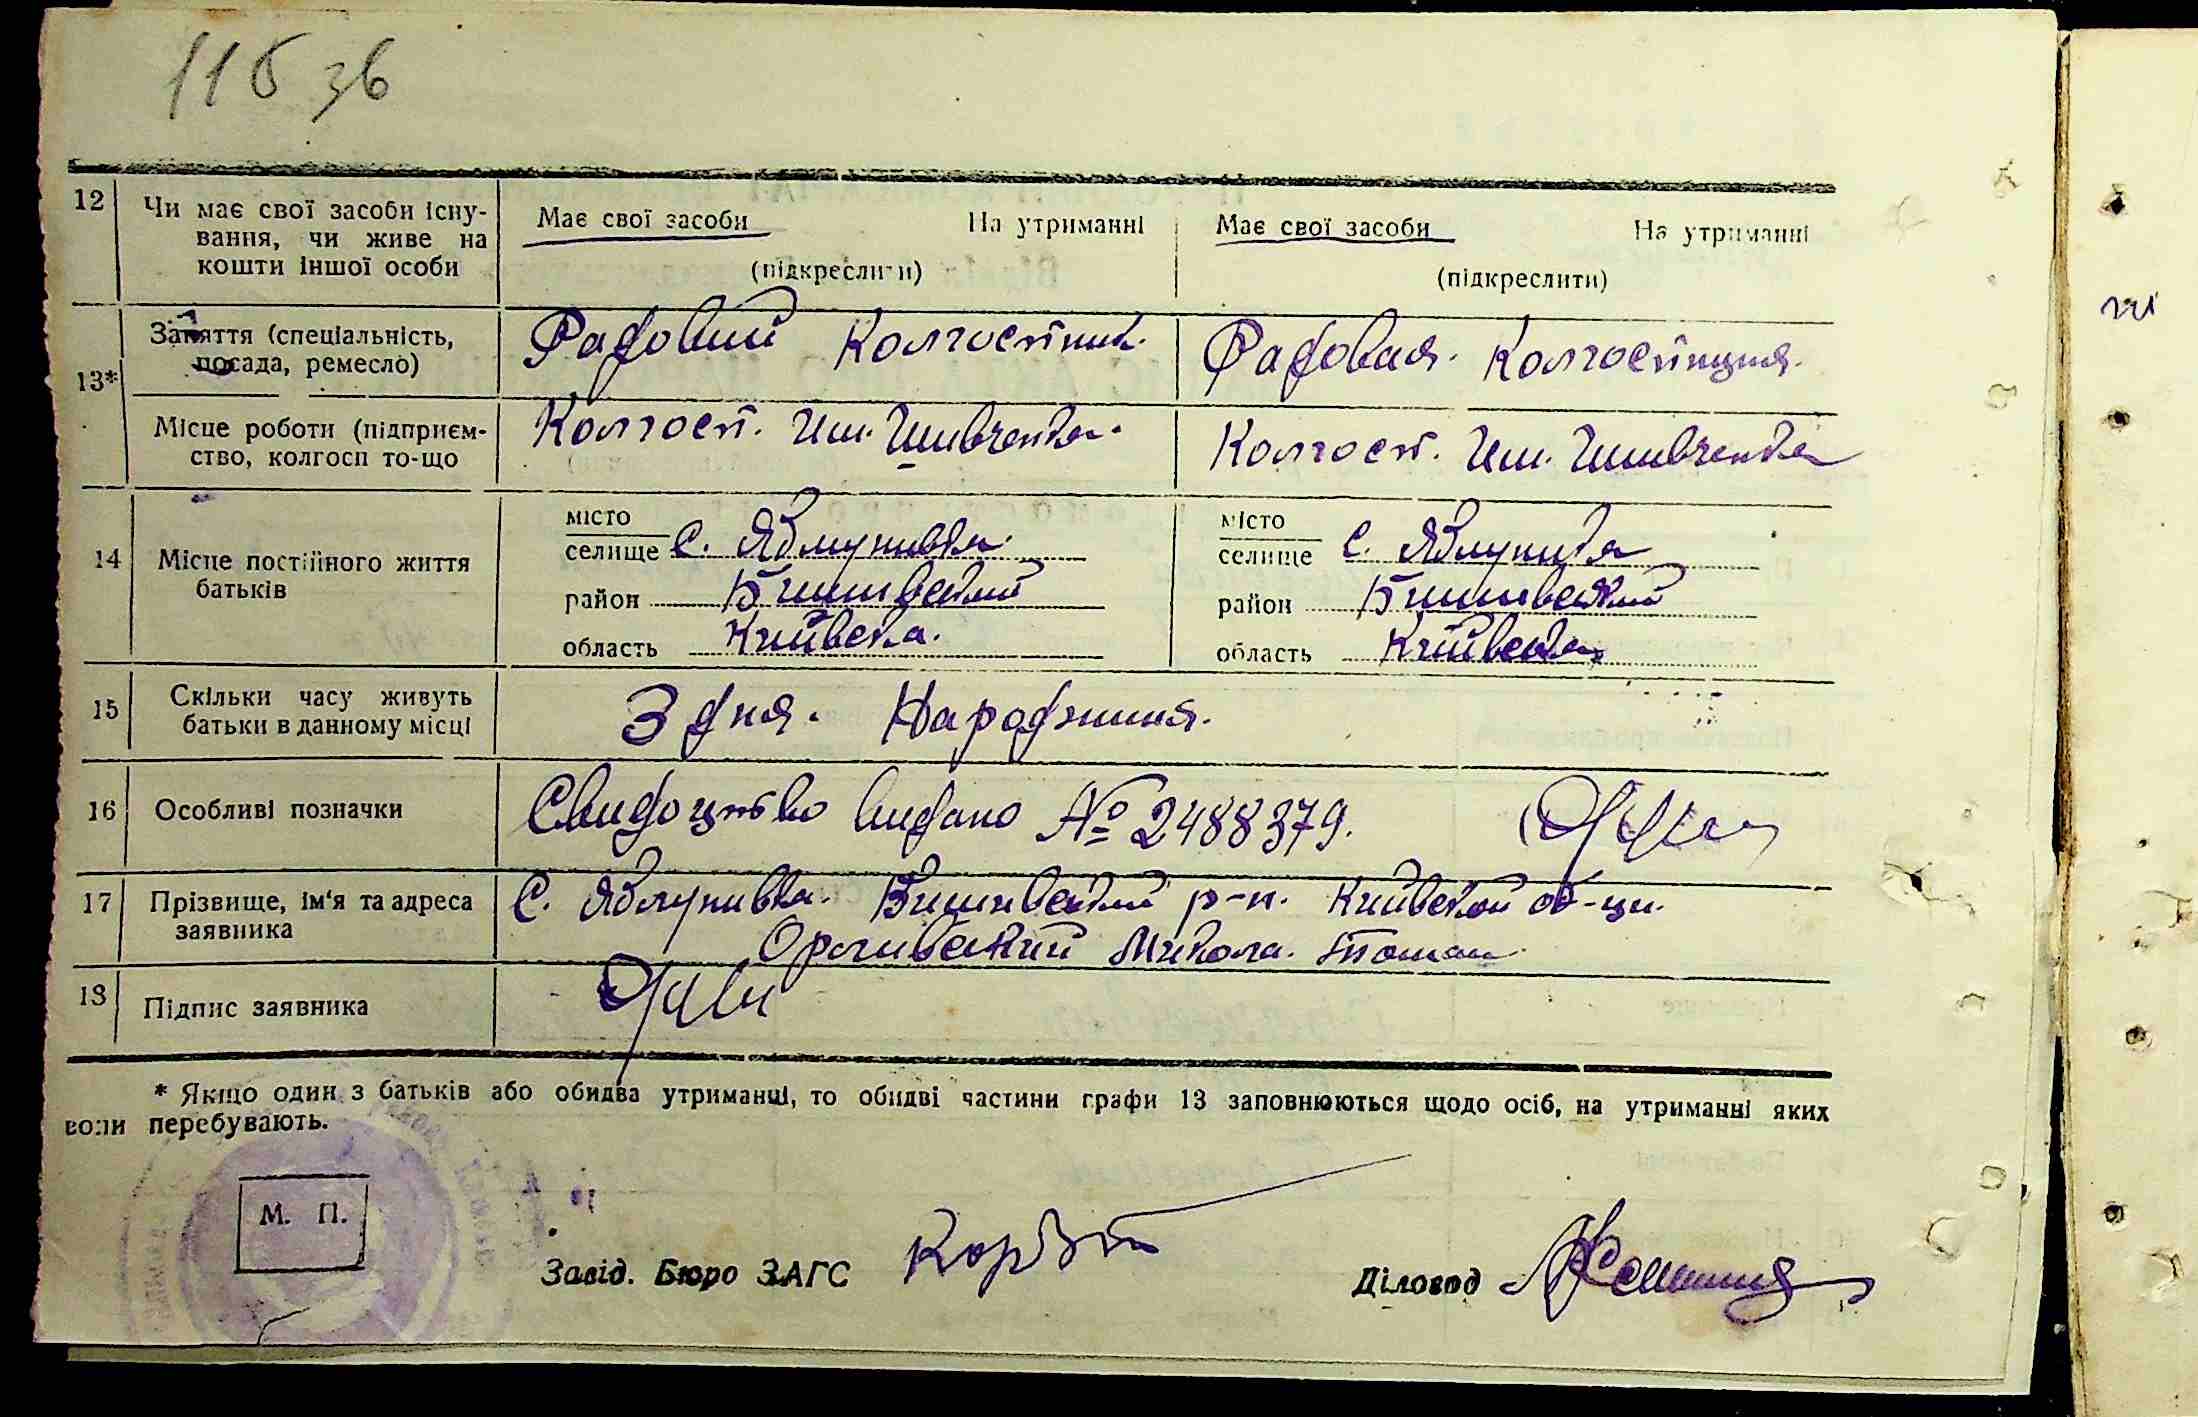 116 зв
12 Чи має свої засоби існу-
вання, чи живе на
кошти іншої особи
Має свої засоби На утриманні
(підкреслити)
Має свої засоби На утриманні
(підкреслити)
13*
Заняття (спеціальність,
посада, ремесло)
Радовий Колгоспник.
Радовая. Колгоспниця.
Місце роботи (підприєм-
ство, колгосп то-що
Колгосп. Им. Шивченка.
Колгосп. Им. Шивченка
14 Місце постійного життя
батьків
місто
селище с. Яблунивка.
район Бишивский
область Київска.
місто
селище с. Яблунивка
район Бишивский
область Київска
15 Скільки часу живуть
батьки в данному місці
З дня. Народжиня.
16 Особливі позначки
Свидоцтво видано № 2488379.
17 Прізвище, ім'я та адреса
заявника
С. Яблунивка. Бишивский р-н. Київской об-ци.
Микола.
18 Підпис заявника
* Якщо один з батьків або обидва утриманці, то обидві частини графи 13 заповнюються щодо осіб, на утриманні яких
вони перебувають.
М. П.
Завід. Бюро ЗАГС
Діловод